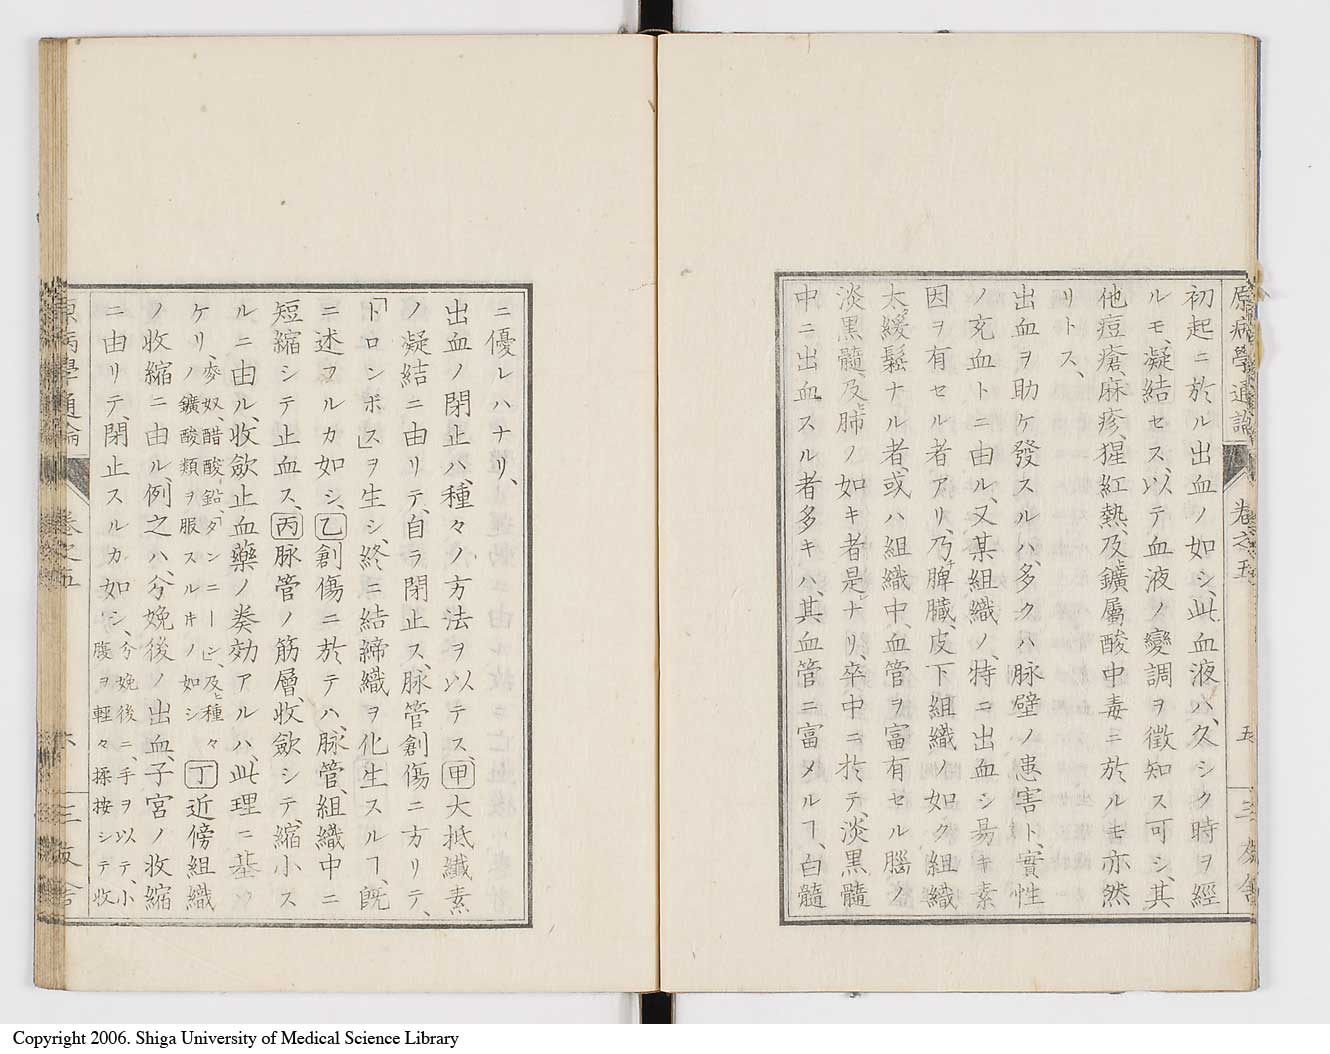 原病學通論
卷之五
五
三友舍
初起ニ於ル出血ノ如シ、此血液ハ、久シク時ヲ經
ルモ、凝結セス、以テ血液ノ變調ヲ徴知ス可シ、其
他痘瘡、麻疹、猩紅熱、及ヒ鑛屬酸中毒ニ於ルモ亦然
リトス、
出血ヲ助ケ發スルハ、多クハ脉壁ノ患害ト、實性
ノ充血トニ由ル、又某組織ノ、特ニ出血シ易キ素
因ヲ有セル者アリ、乃チ脾臓、皮下組織ノ如ク組織
太緩鬆ナル者、或ハ組織中、血管ヲ富有セル腦ノ
淡黒髓、及ヒ肺ノ如キ者是ナリ、卒中ニ於テ、淡黒髓
中ニ出血スル者多キハ、其血管ニ富メルヿ、白髓
ニ優レハナリ、
出血ノ閉止ハ、種々ノ方法ヲ以テス、甲大抵纖素
ノ凝結ニ由リテ、自ラ閉止ス、脉管創傷ニ方リテ、
「トロンボス」ヲ生シ、終ニ結締織ヲ化生スルヿ、既
ニ述フルカ如シ、乙創傷ニ於テハ、脉管、組織中ニ
短縮シテ止血ス、丙脉管ノ筋層、收歛シテ、縮小ス
ルニ由ル、收歛止血藥ノ奏効アルハ、此理ニ基ク
ケリ、麥奴、醋酸鉛、「タンニーン」、及ヒ種々
ノ鑛酸類ヲ服スルキノ如シ
丁近傍組織
ノ收縮ニ由ル、例之ハ、分娩後ノ出血、子宮ノ收縮
ニ由リテ、閉止スルカ如シ、分娩後ニ、手ヲ以テ、小
腹ヲ輕々揉按シテ收
原病學通論
卷之五
六
三友舍
Copyright 2006. Shiga University of Medical Science Library